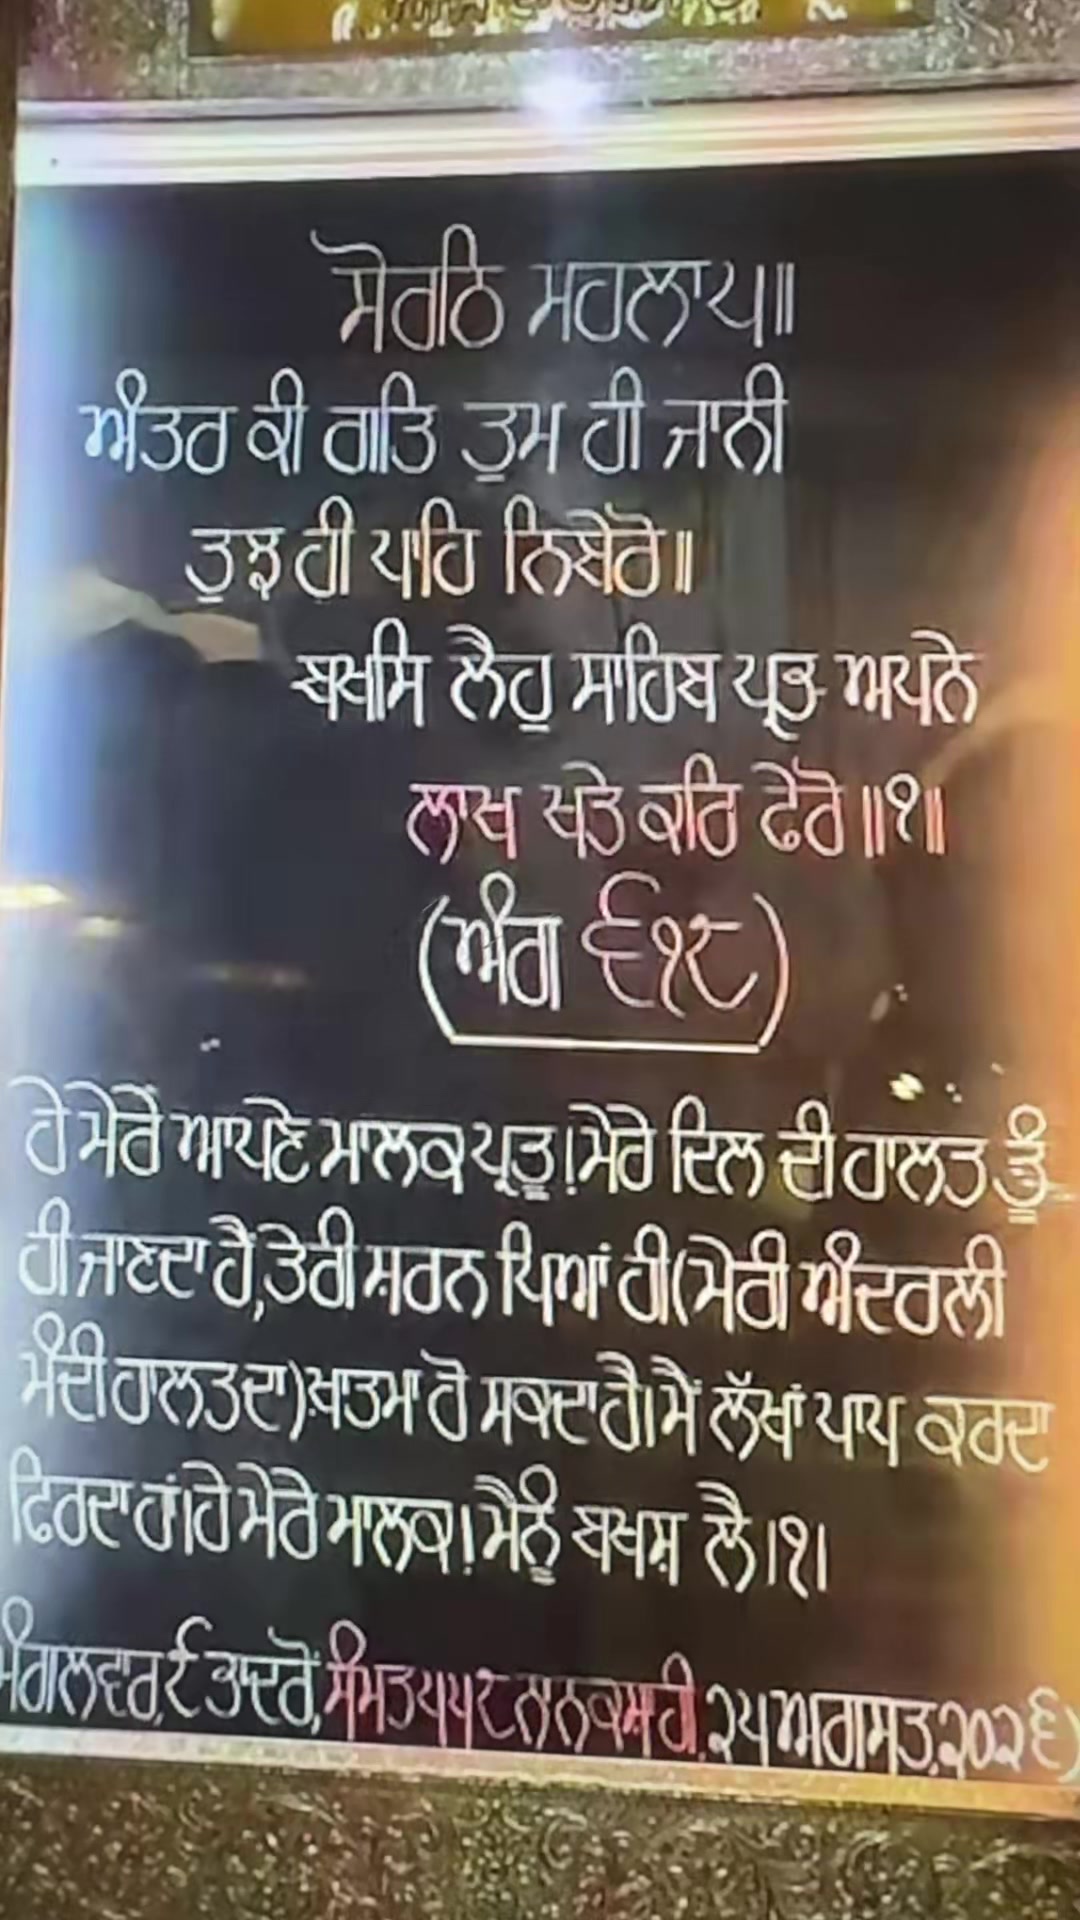 ਸੋਰਠਿ ਮਹਲਾ ੫॥
ਅੰਤਰ ਕੀ ਗਤਿ ਤੁਮ ਹੀ ਜਾਨੀ
ਤੁਝ ਹੀ ਪਾਹਿ ਨਿਬੇਰੋ॥
ਬਖਸਿ ਲੈਹੁ ਸਾਹਿਬ ਪ੍ਰਭ ਅਪਨੇ
ਲਾਖ ਖਤੇ ਕਰਿ ਫੇਰੋ॥੧॥
(ਅੰਗ ੬੧੮)
ਹੇ ਮੇਰੇ ਆਪਣੇ ਮਾਲਕ ਪ੍ਰਭੂ!ਮੇਰੇ ਦਿਲ ਦੀ ਹਾਲਤ ਤੂੰ
ਹੀ ਜਾਣਦਾ ਹੈਂ,ਤੇਰੀ ਸ਼ਰਨ ਪਿਆਂ ਹੀ(ਮੇਰੀ ਅੰਦਰਲੀ
ਮੰਦੀ ਹਾਲਤ ਦਾ)ਖ਼ਾਤਮਾ ਹੋ ਸਕਦਾ ਹੈ।ਮੈਂ ਲੱਖਾਂ ਪਾਪ ਕਰਦਾ
ਫਿਰਦਾ ਹਾਂ।ਹੇ ਮੇਰੇ ਮਾਲਕ!ਮੈਨੂੰ ਬਖਸ਼ ਲੈ।੧।
ਮੰਗਲਵਾਰ,੯ ਭਾਦਰੋਂ,ਸੰਮਤ ੫੫੮ ਨਾਨਕਸ਼ਾਹੀ,੨੫ ਅਗਸਤ,੨੦੨੬)